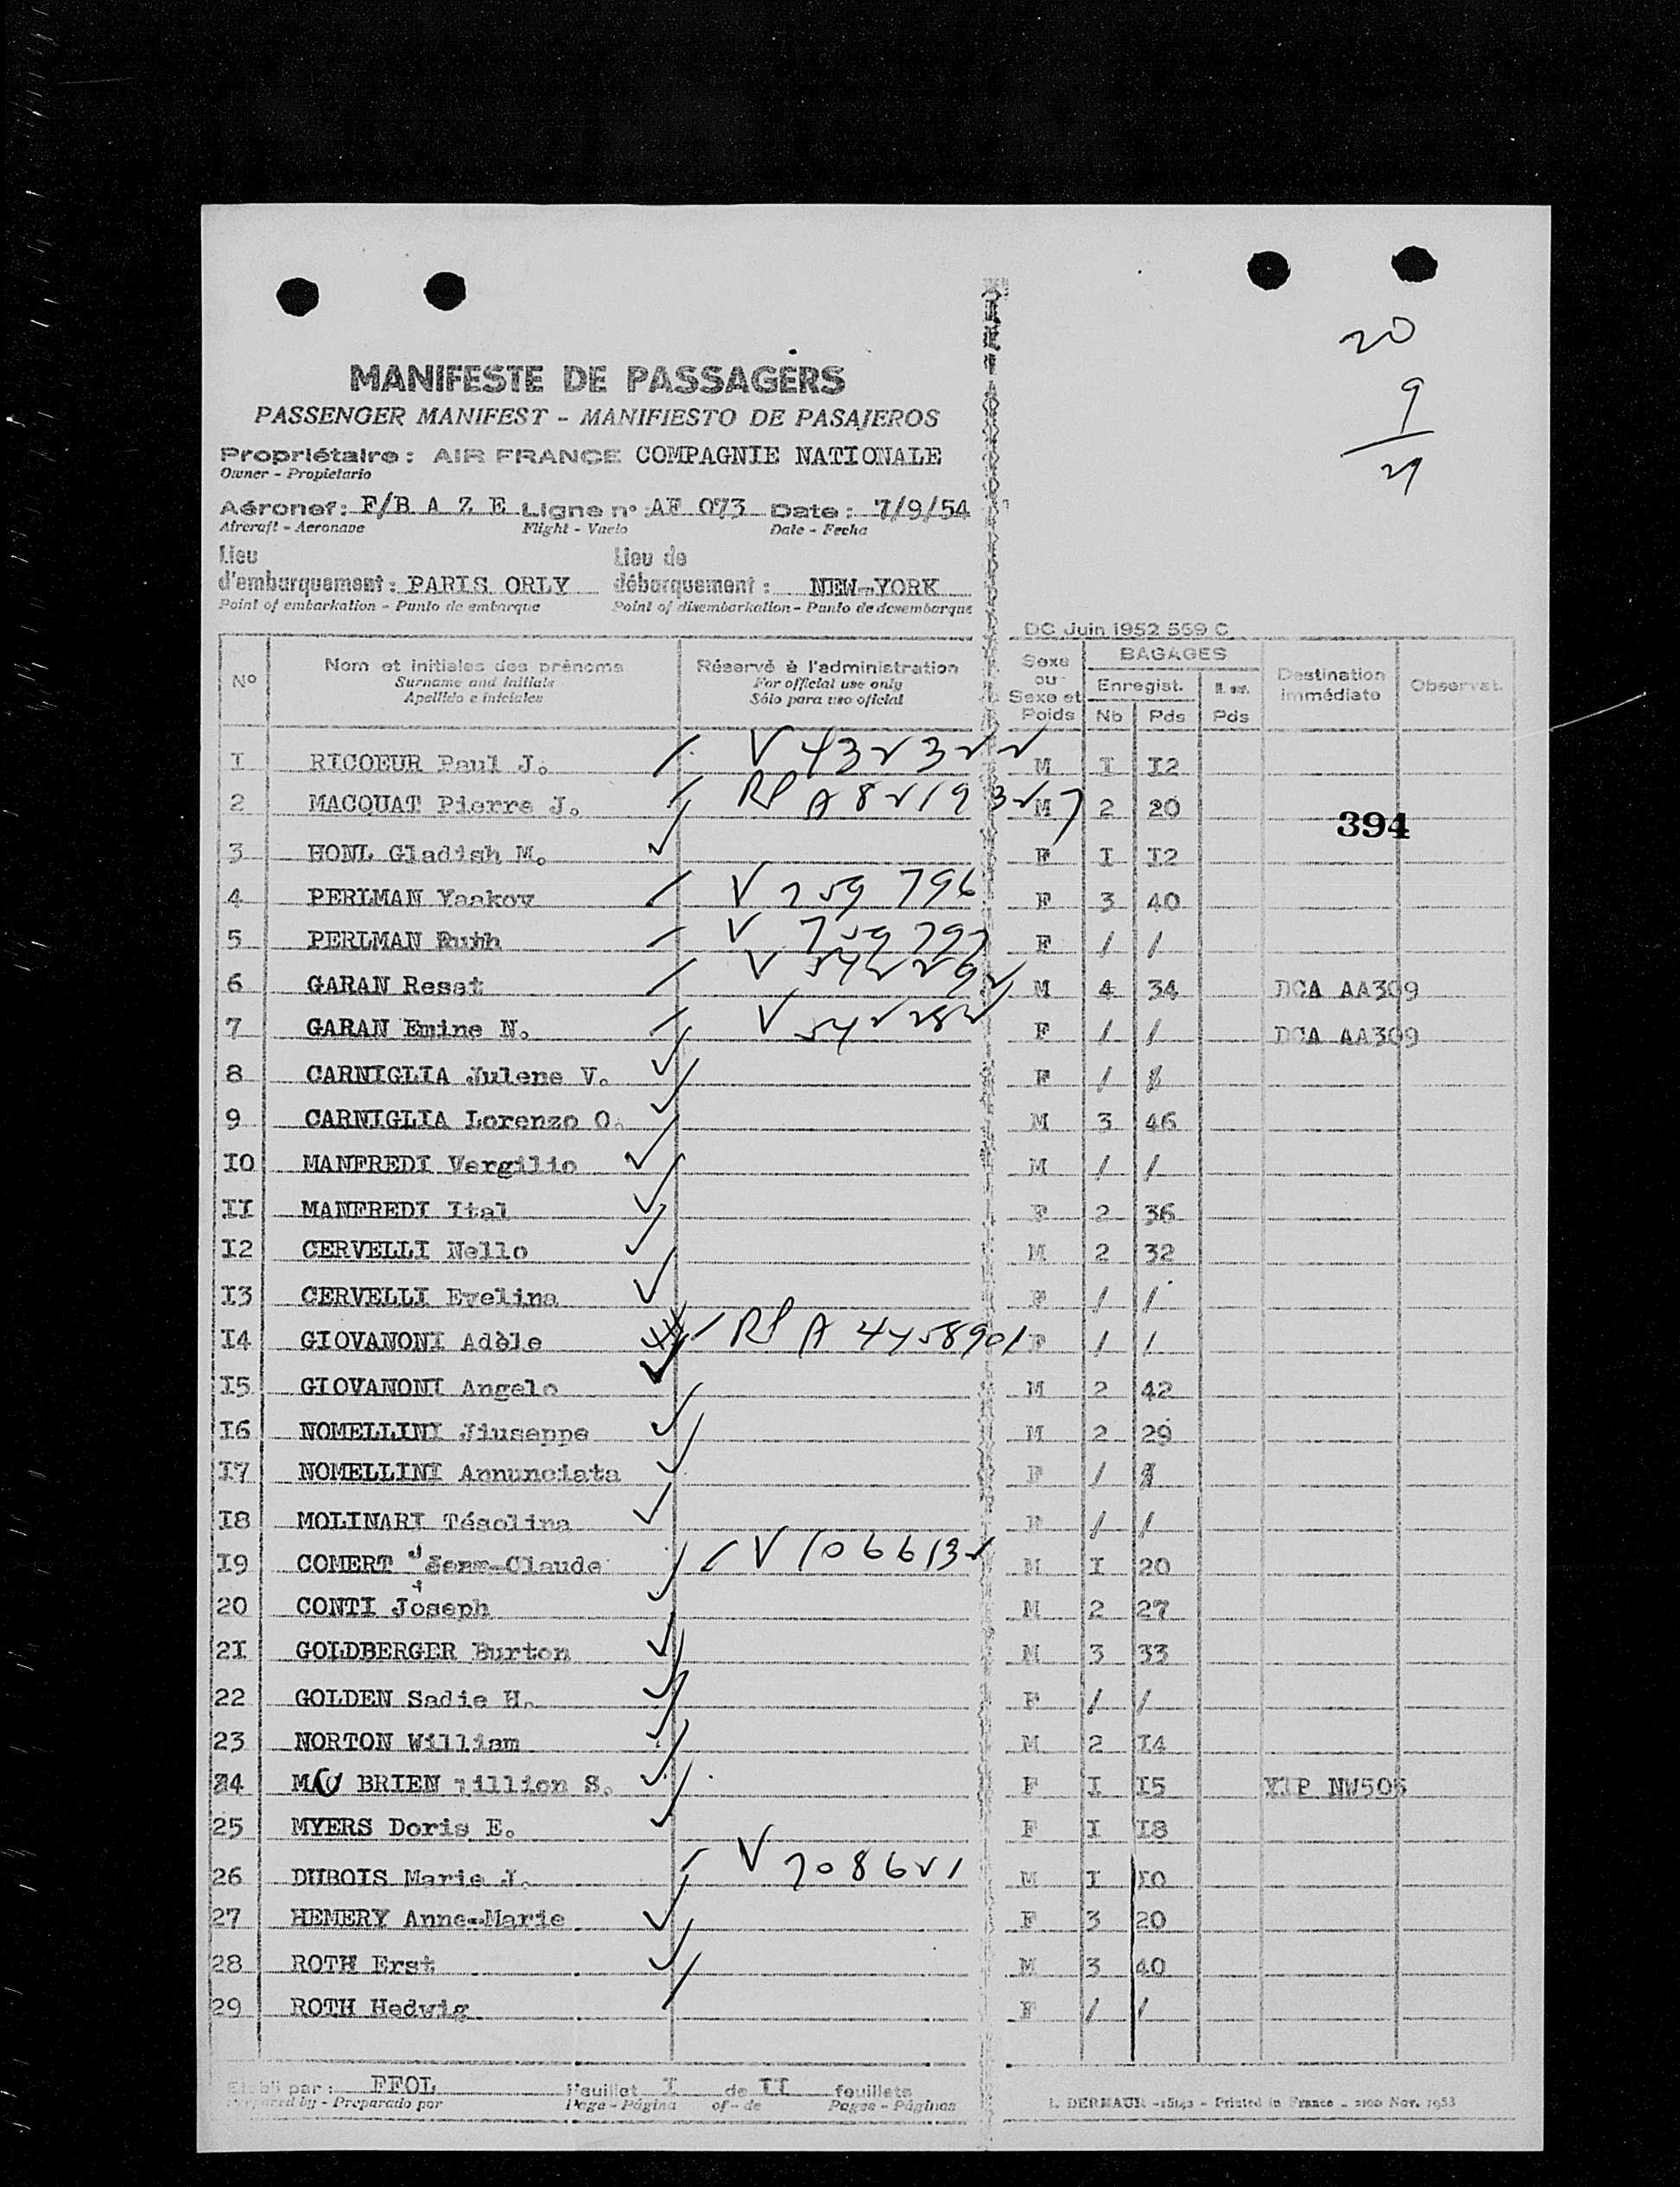 20
9
29
MANIFESTE DE PASSAGERS
PASSENGER MANIFEST - MANIFIESTO DE PASAJEROS
Propriétaire : AIR FRANCE COMPAGNIE NATIONALE
Owner - Propietario
Aéronef : F/B A Z E Ligne n° : AF 073 Date : 7/9/54
Aircraft - Aeronave Flight - Vuelo Date - Fecha
Lieu d'embarquement : PARIS ORLY Lieu de débarquement : NEW-YORK
Point of embarkation - Punto de embarque Point of disembarkation - Punto de desembarque
DC Juin 1952 559 C
N° Nom et initiales des prénoms Réservé à l'administration Sexe ou Sexe et Poids BAGAGES Destination immédiate Observat.
Surname and initials For official use only Enregist.
Apellido e iniciales Sólo para uso oficial Nb Pds Pds
1 RICOEUR Paul J. V 432322 M I I2
2 MACQUAT Pierre J. RP A 8219327 M 2 20
394
3 HONL Gladish M. F I I2
4 PERLMAN Yaakov V 759 796 F 3 40
5 PERLMAN Ruth V 759 797 F / /
6 GARAN Resat V 542292 M 4 34 DCA AA309
7 GARAN Emine N. V F / / DCA AA309
8 CARNIGLIA Julene V. F / /
9 CARNIGLIA Lorenzo O. M 3 46
I0 MANFREDI Vergilio M / /
II MANFREDI Ital F 2 36
I2 CERVELLI Nello M 2 32
I3 CERVELLI Evelina F / /
I4 GIOVANONI Adèle RP A 4458901 F / /
I5 GIOVANONI Angelo M 2 42
I6 NOMELLINI Jiuseppe M 2 29
I7 NOMELLINI Annunciata F / /
I8 MOLINARI Tésolina F / /
I9 COMERT Jean-Claude V 1066132 M I 20
20 CONTI Joseph M 2 27
2I GOLDBERGER Burton M 3 33
22 GOLDEN Sadie H. F / /
23 NORTON William M 2 I4
24 BRIEN S. F I I5 YIP NW505
25 MYERS Doris E. F I I8
26 DUBOIS Marie J. V 708621 M I I0
27 HEMERY Anne-Marie F 3 20
28 ROTH Erst M 3 40
29 ROTH Hedwig F / /
Etabli par : FFOL Feuillet I de II feuillets
Prepared by - Preparado por Page - Página of - de Pages - Páginas
L. DERMAUR - - Printed in France - 2100 Nov. 1953